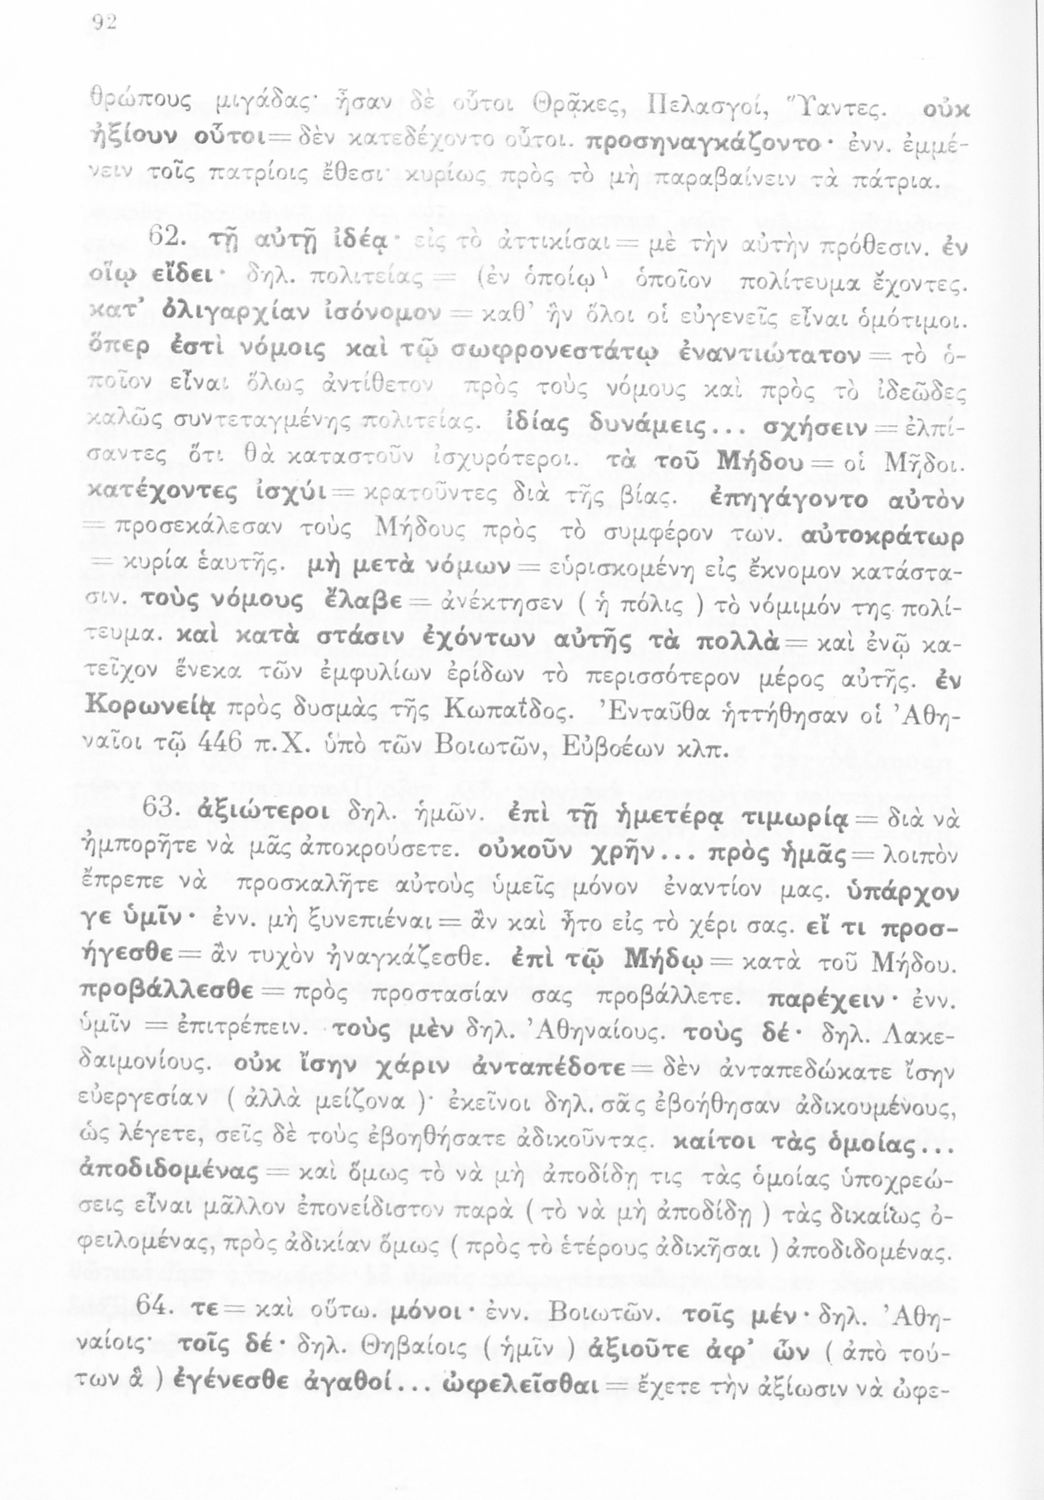 92
θρώπους μιγάδας· ἦσαν δὲ οὗτοι Θρᾷκες, Πελασγοί, Ὕαντες. οὐκ
ἠξίουν οὗτοι = δὲν κατεδέχοντο οὗτοι. προσηναγκάζοντο · ἐνν. ἐμμέ-
νειν τοῖς πατρίοις ἔθεσι· κυρίως πρὸς τὸ μὴ παραβαίνειν τὰ πάτρια.
62. τῇ αὐτῇ ἰδέᾳ · εἰς τὸ ἀττικίσαι = μὲ τὴν αὐτὴν πρόθεσιν. ἐν
οἵῳ εἴδει · δηλ. πολιτείας = (ἐν ὁποίῳ) ὁποῖον πολίτευμα ἔχοντες.
κατ’ ὀλιγαρχίαν ἰσόνομον = καθ’ ἣν ὅλοι οἱ εὐγενεῖς εἶναι ὁμότιμοι.
ὅπερ ἐστὶ νόμοις καὶ τῷ σωφρονεστάτῳ ἐναντιώτατον = τὸ ὁ-
ποῖον εἶναι ὅλως ἀντίθετον πρὸς τοὺς νόμους καὶ πρὸς τὸ ἰδεῶδες
καλῶς συντεταγμένης πολιτείας. ἰδίας δυνάμεις... σχήσειν = ἐλπί-
σαντες ὅτι θὰ καταστοῦν ἰσχυρότεροι. τὰ τοῦ Μήδου = οἱ Μῆδοι.
κατέχοντες ἰσχύι = κρατοῦντες διὰ τῆς βίας. ἐπηγάγοντο αὐτὸν
= προσεκάλεσαν τοὺς Μήδους πρὸς τὸ συμφέρον των. αὐτοκράτωρ
= κυρία ἑαυτῆς. μὴ μετὰ νόμων = εὑρισκομένη εἰς ἔκνομον κατάστα-
σιν. τοὺς νόμους ἔλαβε = ἀνέκτησεν ( ἡ πόλις ) τὸ νόμιμόν της πολί-
τευμα. καὶ κατὰ στάσιν ἐχόντων αὐτῆς τὰ πολλὰ = καὶ ἐνῷ κα-
τεῖχον ἕνεκα τῶν ἐμφυλίων ἐρίδων τὸ περισσότερον μέρος αὐτῆς. ἐν
Κορωνείᾳ πρὸς δυσμὰς τῆς Κωπαΐδος. Ἐνταῦθα ἡττήθησαν οἱ Ἀθη-
ναῖοι τῷ 446 π.Χ. ὑπὸ τῶν Βοιωτῶν, Εὐβοέων κλπ.
63. ἀξιώτεροι δηλ. ἡμῶν. ἐπὶ τῇ ἡμετέρᾳ τιμωρίᾳ = διὰ νὰ
ἠμπορῆτε νὰ μᾶς ἀποκρούσετε. οὐκοῦν χρῆν... πρὸς ἡμᾶς = λοιπὸν
ἔπρεπε νὰ προσκαλῆτε αὐτοὺς ὑμεῖς μόνον ἐναντίον μας. ὑπάρχον
γε ὑμῖν · ἐνν. μὴ ξυνεπιέναι = ἂν καὶ ἦτο εἰς τὸ χέρι σας. εἴ τι προσ-
ήγεσθε = ἂν τυχὸν ἠναγκάζεσθε. ἐπὶ τῷ Μήδῳ = κατὰ τοῦ Μήδου.
προβάλλεσθε = πρὸς προστασίαν σας προβάλλετε. παρέχειν · ἐνν.
ὑμῖν = ἐπιτρέπειν. τοὺς μὲν δηλ. Ἀθηναίους. τοὺς δέ · δηλ. Λακε-
δαιμονίους. οὐκ ἴσην χάριν ἀνταπέδοτε = δὲν ἀνταπεδώκατε ἴσην
εὐεργεσίαν ( ἀλλὰ μείζονα )· ἐκεῖνοι δηλ. σᾶς ἐβοήθησαν ἀδικουμένους,
ὡς λέγετε, σεῖς δὲ τοὺς ἐβοηθήσατε ἀδικοῦντας. καίτοι τὰς ὁμοίας...
ἀποδιδομένας = καὶ ὅμως τὸ νὰ μὴ ἀποδίδῃ τις τὰς ὁμοίας ὑποχρεώ-
σεις εἶναι μᾶλλον ἐπονείδιστον παρὰ ( τὸ νὰ μὴ ἀποδίδῃ ) τὰς δικαίως ὀ-
φειλομένας, πρὸς ἀδικίαν ὅμως ( πρὸς τὸ ἑτέρους ἀδικῆσαι ) ἀποδιδομένας.
64. τε = καὶ οὕτω. μόνοι · ἐνν. Βοιωτῶν. τοῖς μέν · δηλ. Ἀθη-
ναίοις· τοῖς δέ · δηλ. Θηβαίοις ( ἡμῖν ) ἀξιοῦτε ἀφ’ ὧν ( ἀπὸ τού-
των ἃ ) ἐγένεσθε ἀγαθοί... ὠφελεῖσθαι = ἔχετε τὴν ἀξίωσιν νὰ ὠφε-